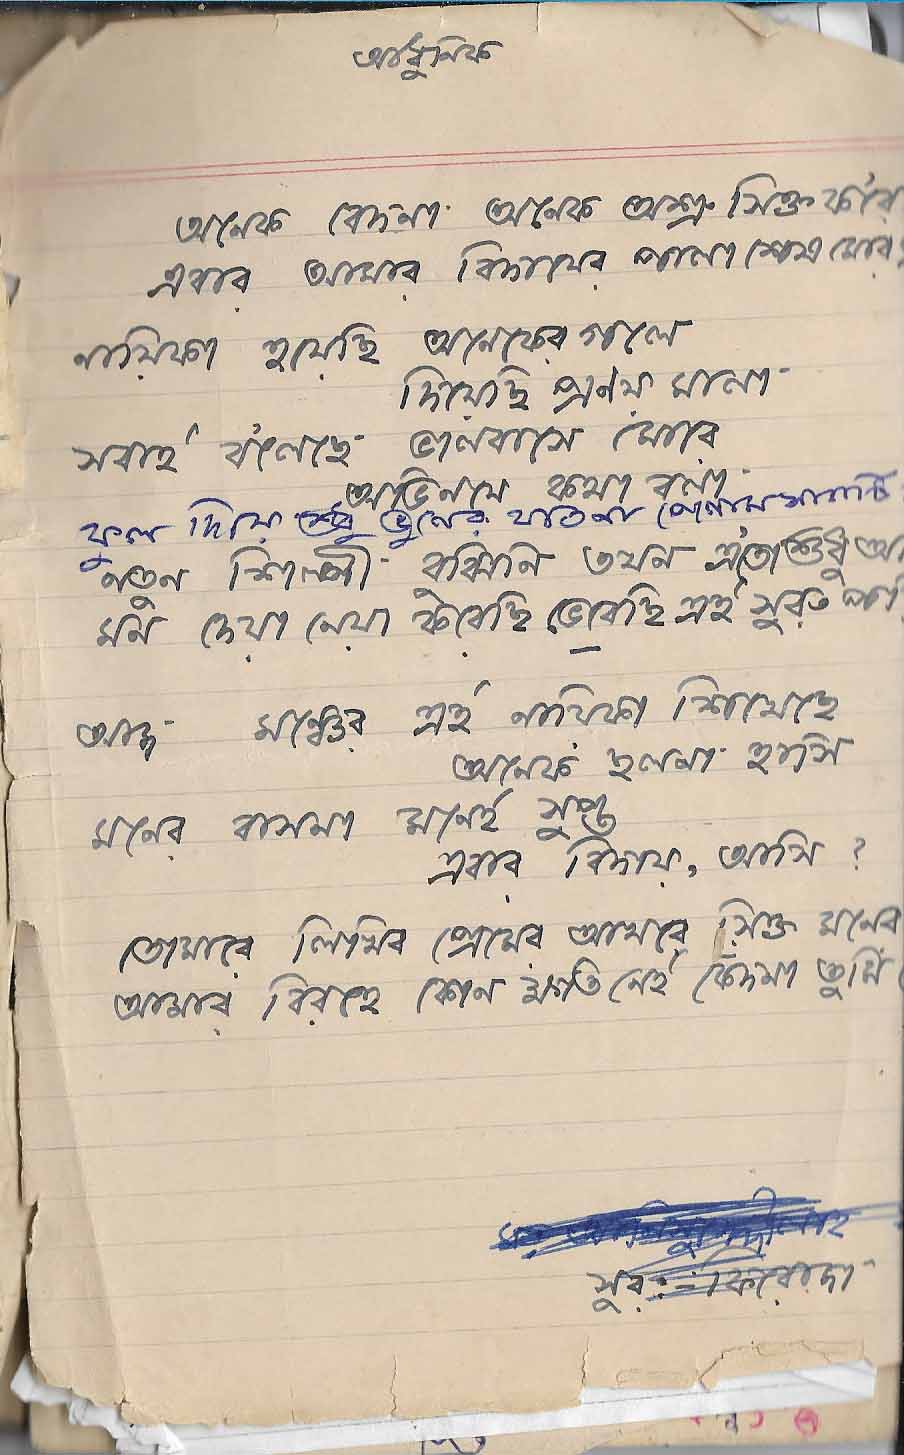 আধুনিক
অনেক বেদনা অনেক অশ্রু সিক্ত করি
এবার আমার বিদায়ের পালা শেষ মোর
নায়িকা হয়েছি অনেকের গলে
দিয়েছি প্রণয় মালা
সবাই ব'লেছে ভালবাসে মোরে
অভিনয়ে কথা বলা
ফুল দিয়ে শুধু ভুলের যাতনা পেলাম
নতুন শিল্পী বুঝিনি তখন এ'তো শুধু
মন দেয়া নেয়া ক'রেছি ভেবেছি এই সুর
আজ মঞ্চের এই নায়িকা শিখেছে
অনেক ছলনা হাসি
মনের বাসনা মনেই সুপ্ত
এবার বিদায়, আসি ?
তোমারে লিখিব প্রেমের আখরে সিক্ত মনের
আমার বিরহে কোন ক্ষতি নেই কেঁদনা তুমি
সুর :-